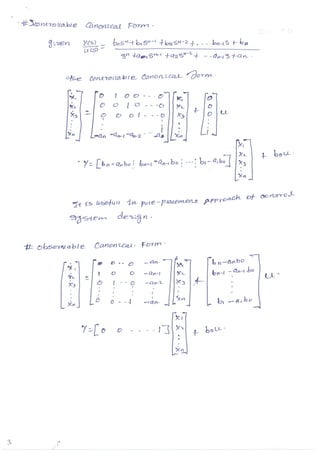 # Controllable Canonical Form.
given Y(s)/U(s) = b₀sⁿ + b₁sⁿ⁻¹ + b₂sⁿ⁻² + ... bₙ₋₁s + bₙ
sⁿ + a₁sⁿ⁻¹ + a₂sⁿ⁻² + ... aₙ₋₁s + aₙ.
the controllable canonical form
[ẋ₁ ẋ₂ ẋ₃ ⋮ ẋₙ] = [0 1 0 0 --- 0
0 0 1 0 --- 0
0 0 0 1 --- 0
⋮
-aₙ -aₙ₋₁ -aₙ₋₂ ---] [x₁ x₂ x₃ ⋮ xₙ] + [0 0 0 ⋮ 1] u
y = [bₙ-aₙb₀ ⋮ bₙ₋₁-aₙ₋₁b₀ ⋮ --- ⋮ b₁-a₁b₀] [x₁ x₂ x₃ ⋮ xₙ] + b₀u.
It is usefull in pole-placement approach of control
system design.
# observable Canonical Form
[ẋ₁ ẋ₂ ẋ₃ ⋮ ẋₙ] = [0 0 -- 0 -aₙ
1 0 0 -aₙ₋₁
0 1 -- 0 -aₙ₋₂
⋮
0 0 -- 1] [x₁ x₂ x₃ ⋮ xₙ] + [bₙ-aₙb₀
bₙ₋₁-aₙ₋₁b₀
⋮
b₁-a₁b₀] u.
y = [0 0 ---- 1] [x₁ x₂ ⋮ xₙ] + b₀u.